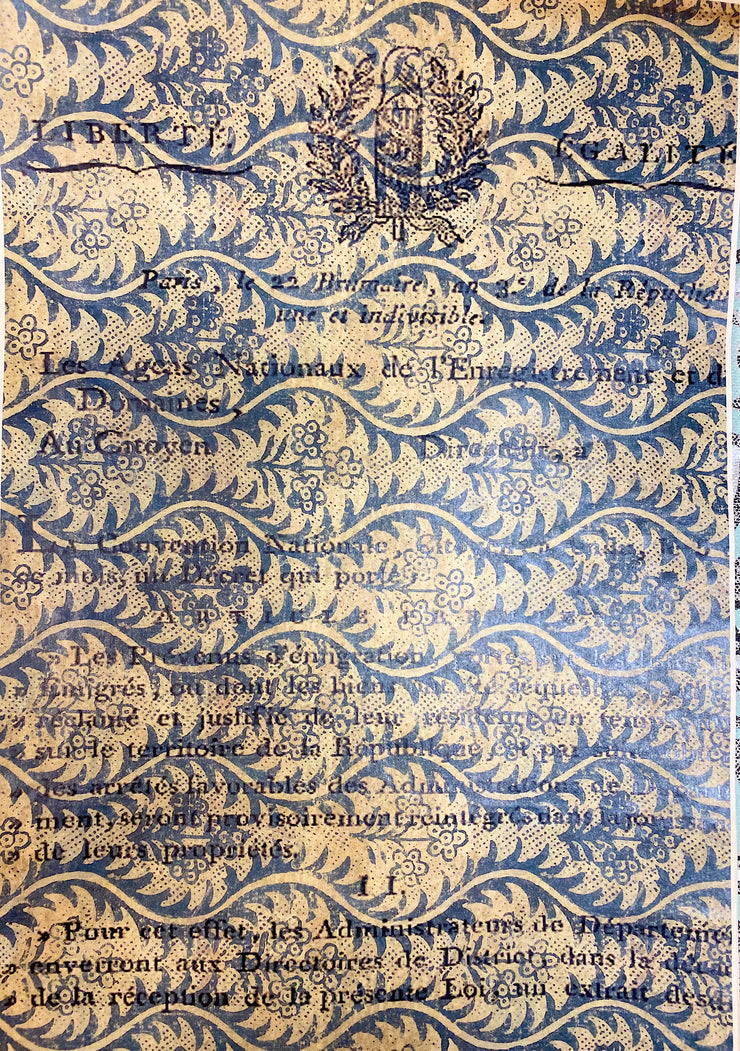 LIBERTÉ. EGALITÉ
Paris, le 22 Brumaire, an 3.e de la République
une et indivisible.
Les Agens Nationaux de l'Enregistrement et d
Domaines,
Au Citoyen Directeur, à
LA Convention Nationale, Citoyen, a rendu, le
mois, un Décret qui porte,
ARTICLE
» Les Prévenus d'émigration portés
» Emigrés, ou dont les biens ont été séquest
» réclamé et justifié de leur résidence en temps
» sur le territoire de la République, et par
» des arrêtés favorables des Administrations de D
» ment, seront provisoirement réintégrés dans la jouis
» de leurs propriétés.
II.
» Pour cet effet, les Administrateurs de Départemen
» enverront aux Directoires de District, dans la
» de la réception de la présente Loi, un extrait des